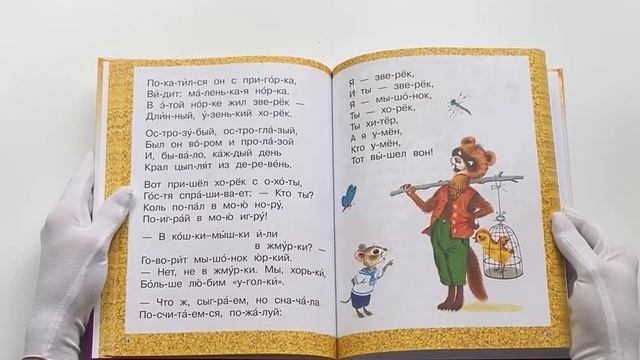 По-ка-ти́л-ся он с при-го́р-ка,
Ви́-дит: ма́-лень-ка-я но́р-ка.
В э́-той но́р-ке жил зве-рёк —
Дли́н-ный, у́-зень-кий хо-рёк.
Ост-ро-зу́-бый, ост-ро-гла́-зый,
Был он во́-ром и про-ла́-зой
И, бы-ва́-ло, ка́ж-дый день
Крал цып-ля́т из де-ре-ве́нь.
Вот при-шёл хо-рёк с о-хо́-ты,
Го́с-тя спра́-ши-ва-ет: — Кто ты?
Коль по-па́л в мо-ю́ но-ру́,
По-иг-ра́й в мо-ю́ иг-ру́!
— В ко́ш-ки–мы́ш-ки и́-ли
в жму́р-ки? —
Го-во-ри́т мы-шо́-нок ю́р-кий.
— Нет, не в жму́р-ки. Мы, хорь-ки́,
Бо́ль-ше лю́-бим «у-гол-ки́».
— Что ж, сыг-ра́-ем, но сна-ча́-ла
По-счи-та́-ем-ся, по-жа́-луй:
Я — зве-рёк,
И ты — зве-рёк,
Я — мы-шо́-нок,
Ты — хо-рёк,
Ты хи-тёр,
А я у-мён,
Кто у-мён,
Тот вы́-шел вон!